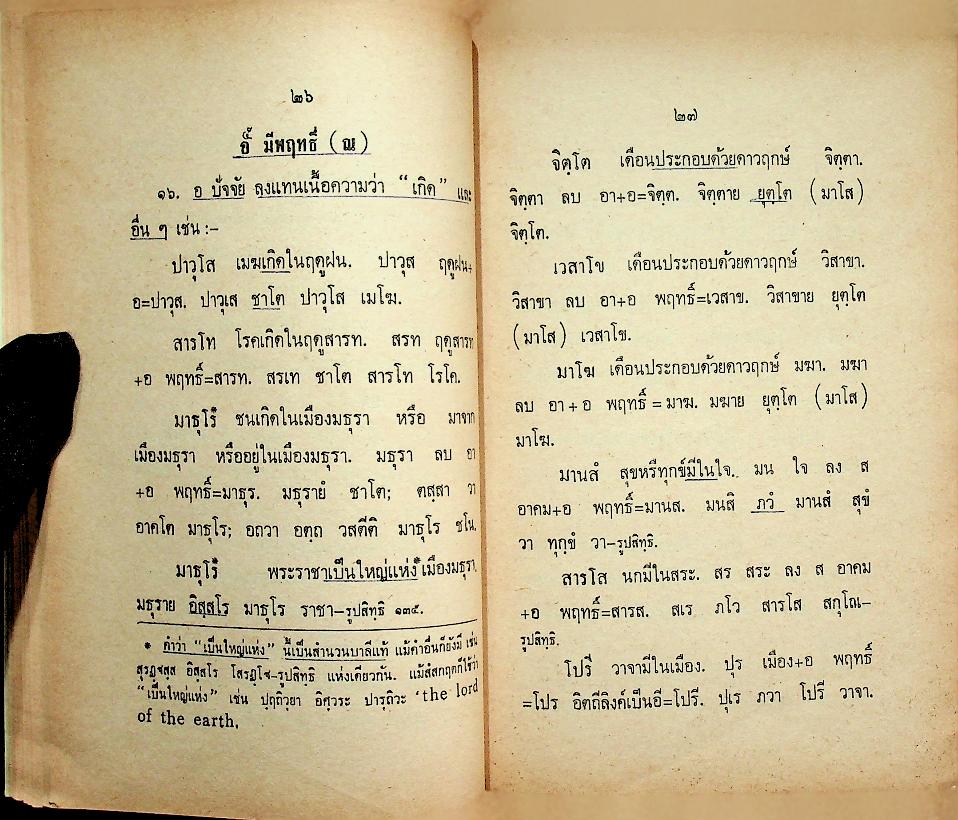 ๒๖
อั๎ มีพฤทธิ์ (ณ)
๑๖. อ ปัจจัย ลงแทนเนื้อความว่า “เกิด” และ
อื่น ๆ เช่น :–
ปาวุโส เมฆเกิดในฤดูฝน. ปาวุส ฤดูฝน+
อ=ปาวุส. ปาวุเส ชาโต ปาวุโส เมโฆ.
สารโท โรคเกิดในฤดูสารท. สรท ฤดูสารท
+อ พฤทธิ์=สารท. สรเท ชาโต สารโท โรโค.
มาธุโร ชนเกิดในเมืองมธุรา หรือ มาจาก
เมืองมธุรา หรืออยู่ในเมืองมธุรา. มธุรา ลบ อา
+อ พฤทธิ์=มาธุร. มธุรายํ ชาโต; ตสฺสา วา
อาคโต มาธุโร; อถวา อตฺถ วสตีติ มาธุโร ชโน.
มาธุโร พระราชาเป็นใหญ่แห่ง*เมืองมธุรา.
มธุราย อิสฺสโร มาธุโร ราชา–รูปสิทธิ ๑๓๕.
* คำว่า “เป็นใหญ่แห่ง” นี้เป็นสำนวนบาลีแท้ แม้คำอื่นก็ยังมี เช่น
สุรฏฺฐสฺส อิสฺสโร โสรฏฺโฐ–รูปสิทธิ แห่งเดียวกัน. แม้สํสกฤตก็ใช้ว่า
“เป็นใหญ่แห่ง” เช่น ปฺฤถิวฺยา อิศฺวระ ปารฺถิวะ ‘the lord
of the earth,
๒๗
จิตฺโต เดือนประกอบด้วยดาวฤกษ์ จิตฺตา.
จิตฺตา ลบ อา+อ=จิตฺต. จิตฺตาย ยุตฺโต (มาโส)
จิตฺโต.
เวสาโข เดือนประกอบด้วยดาวฤกษ์ วิสาขา.
วิสาขา ลบ อา+อ พฤทธิ์=เวสาข. วิสาขาย ยุตฺโต
(มาโส) เวสาโข.
มาโฆ เดือนประกอบด้วยดาวฤกษ์ มฆา. มฆา
ลบ อา+อ พฤทธิ์=มาฆ. มฆาย ยุตฺโต (มาโส)
มาโฆ.
มานสํ สุขหรือทุกข์มีในใจ. มน ใจ ลง ส
อาคม+อ พฤทธิ์=มานส. มนสิ ภวํ มานสํ สุขํ
วา ทุกฺขํ วา–รูปสิทธิ.
สารโส นกมีในสระ. สร สระ ลง ส อาคม
+อ พฤทธิ์=สารส. สเร ภโว สารโส สกุโณ–
รูปสิทธิ.
โปรี วาจามีในเมือง. ปุร เมือง+อ พฤทธิ์
=โปร อิตถีลิงค์เป็นอี=โปรี. ปุเร ภวา โปรี วาจา.